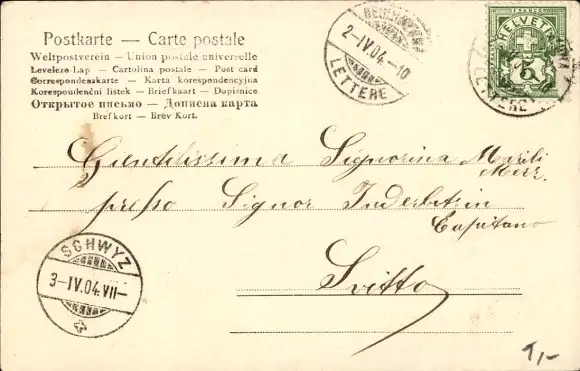 Postkarte — Carte postale
Weltpostverein — Union postale universelle
Levelezo-Lap — Cartolina postale — Post card
Correspondenzkarte — Karta korespondencyjna
Korespondenční lístek — Briefkaart — Dopisnice
Открытое письмо — Дописна карта
Brefkort — Brév Kort.
2-IV.04.-10
LETTERE
FRANCO
HELVETIA
5
LETTERE
Gientilissima Signorina Marili
Merz.
presso Signor Inderbitzin
Capitano
Svitto
SCHWYZ
3-IV.04.VII-
1,-